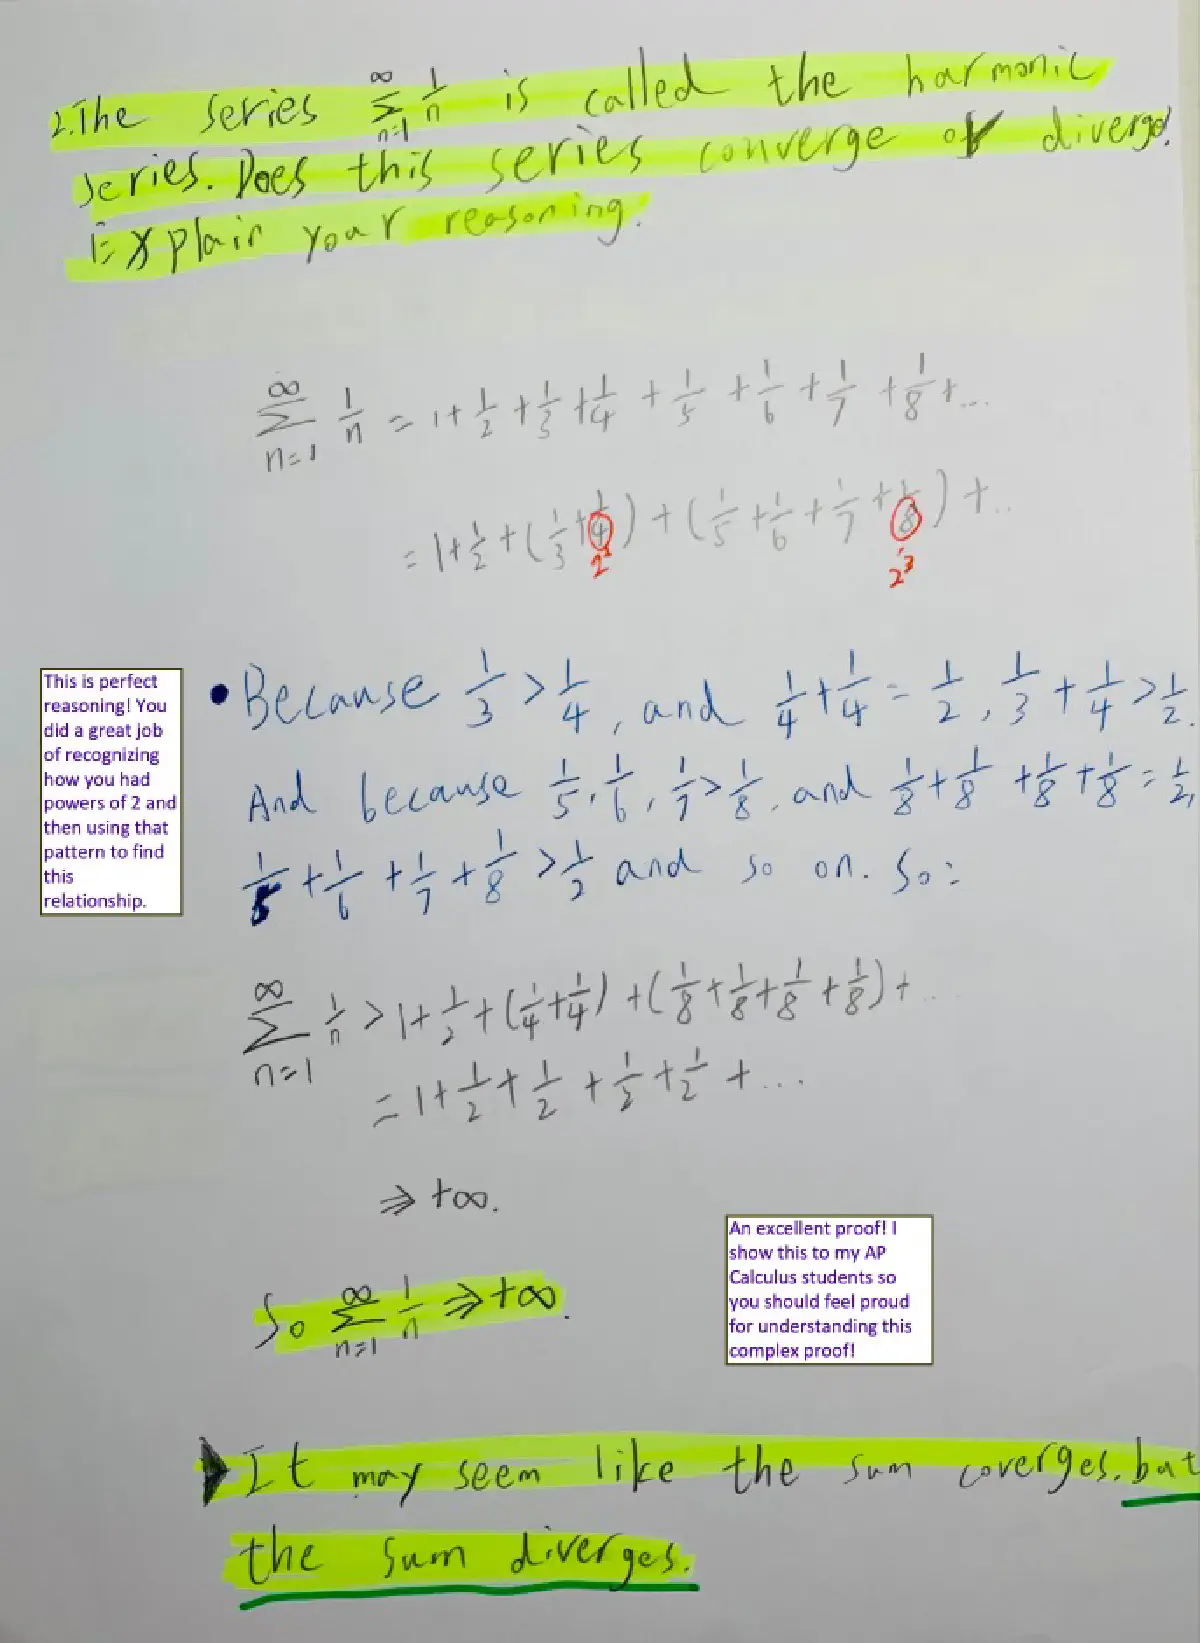 2. The series ∞ Σ n=1 1/n is called the harmonic
series. Does this series converge or diverge?
Explain your reasoning.
∞ Σ n=1 1/n = 1 + 1/2 + 1/3 + 1/4 + 1/5 + 1/6 + 1/7 + 1/8 + ...
= 1 + 1/2 + (1/3 + 1/4) + (1/5 + 1/6 + 1/7 + 1/8) + ...
2² 2³
This is perfect
reasoning! You
did a great job
of recognizing
how you had
powers of 2 and
then using that
pattern to find
this
relationship.
• Because 1/3 > 1/4, and 1/4 + 1/4 = 1/2, 1/3 + 1/4 > 1/2.
And because 1/5, 1/6, 1/7 > 1/8, and 1/8 + 1/8 + 1/8 + 1/8 = 1/2,
1/5 + 1/6 + 1/7 + 1/8 > 1/2 and so on. So:
∞ Σ n=1 1/n > 1 + 1/2 + (1/4 + 1/4) + (1/8 + 1/8 + 1/8 + 1/8) + ...
= 1 + 1/2 + 1/2 + 1/2 + 1/2 + ...
⇒ +∞.
An excellent proof! I
show this to my AP
Calculus students so
you should feel proud
for understanding this
complex proof!
So ∞ Σ n=1 1/n ⇒ +∞.
It may seem like the sum coverges. but
the sum diverges.